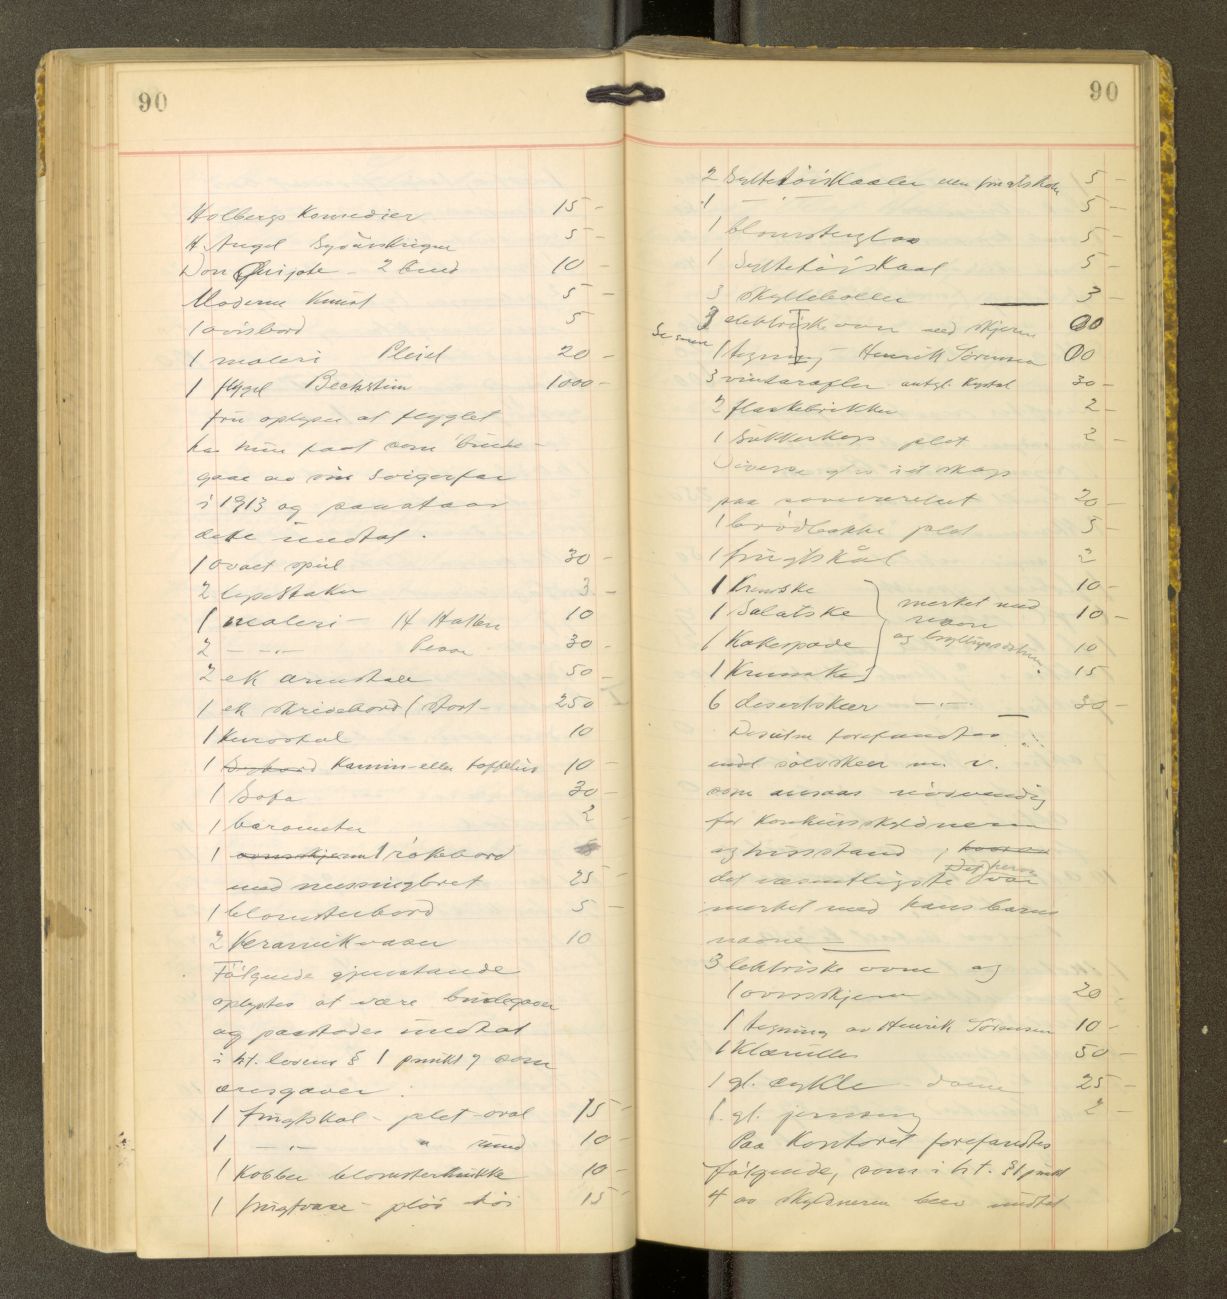 90
Holbergs Komedier 15 -
H. Angel 5 -
Don Quijote - 2 bind 10 -
Moderne Kunst 5 -
1 avisbord 5
1 maleri 20 -
1 flygel Bechstein 1000 -
Fru oplyser at flyglet
har hun faat som brude-
gave av sin svigerfar
i 1913 og paastaar
dette undtat.
1 ovalt speil 30 -
2 lysestaker 3 -
1 maleri - H Hatlen 10
2 - " - 30 -
2 ek armstole 50 -
1 ek skrivebord (stort - 250
1 Kurvstol 10
1 Kamin- eller 10 -
1 Sofa 30 -
1 barometer 2 -
1 ovnskjerm 1 røkebord
med messingbret 25 -
1 blomsterbord 5 -
2 Keramikvaser 10
Følgende gjenstande
oplystes at være brudegaver
og paastodes undtat
i h.t. lovens § 1 punkt 7 som
æresgaver.
1 frugtskal - plet oval 15 -
1 - " - " rund 10 -
1 Kobber blomsterkrukke 10 -
1 frugtvase - 15 -
90
2 Syltetøiskaaler 5 -
1 - " - 5 -
1 blomsterglas 5 -
1 Syltetøiskaal 5 -
3 Skylleboller 3 -
3 elektriske ovn med skjerm 00
1 tegning Henrik Sørensen 00
3 vinkarafler 30 -
2 flaskebrikker 2 -
1 Sukkerkop plet 2 -
Diverse glas i et skap
paa soveværelset 20 -
1 brødbakke plet 5 -
1 frugtskål 2
1 Kremske 10 -
1 Salatske 10 -
1 Kakespade 10
1 Kremske 15 -
merket med
navn
og bryllupsdatum
6 desertskeer - " - 30 -
Desuten forefandtes
endel sølvskeer m. v.
som ansaas nødvendig
for konkursskyldneren
og husstand,
det væsentligste var
merket med hans barns
navne
3 elektriske ovne og
1 ovnsskjerm 20 -
1 tegning av Henrik Sørensen 10 -
1 Klærulle 50 -
1 gl. cykle - dame 25 -
1 gl. 2 -
Paa Kontoret forefandtes
følgende, som i h.t. § 1 punkt
4 av skyldneren blev undtat